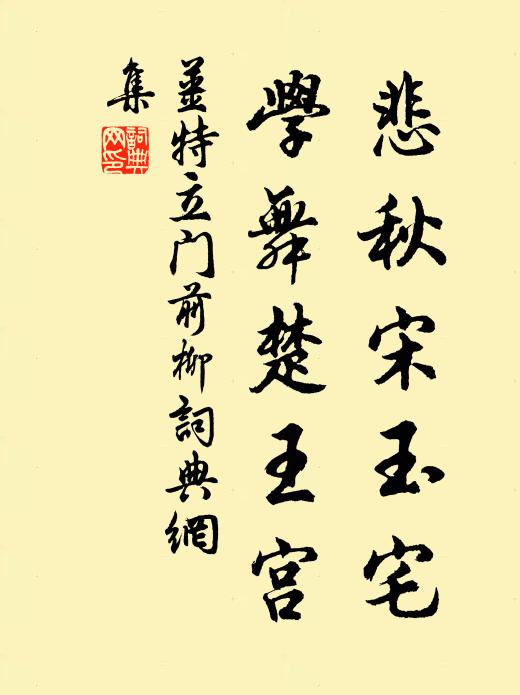 悲秋宋玉宅
學舞楚王宮
姜特立门前柳詞典網
集
詞典
网印